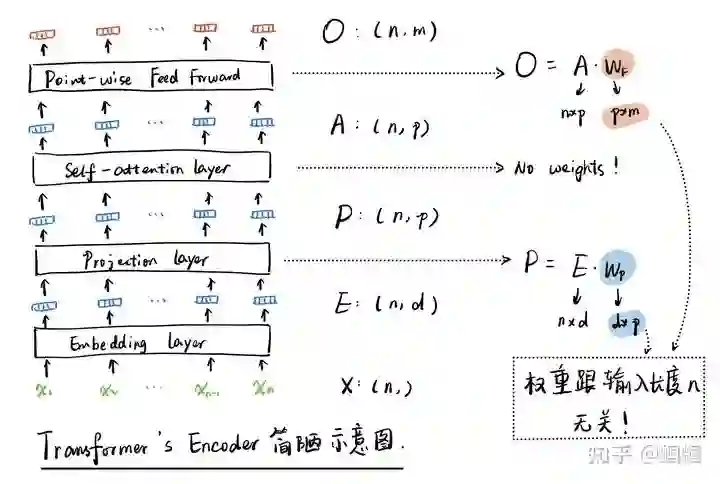 O : (n, m)
Point-wise Feed Forward
O = A · W_F
n×p p×m
A : (n, p)
Self-attention layer
No weights !
P : (n, p)
Projection layer
P = E · W_P
n×d d×p
E : (n, d)
Embedding layer
X : (n,)
x₁ x₂ ... xₙ₋₁ xₙ
权重跟输入长度n
无关！
Transformer's Encoder 简陋示意图.